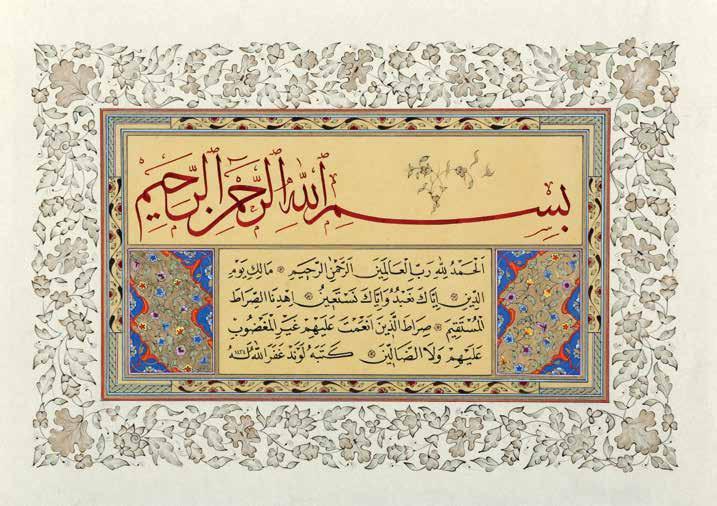 بِسْمِ اللهِ الرَّحْمٰنِ الرَّحِيمِ
اَلْحَمْدُ لِلهِ رَبِّ الْعَالَمِينَ الرَّحْمٰنِ الرَّحِيمِ مَالِكِ يَوْمِ
الدِّينِ اِيَّاكَ نَعْبُدُ وَاِيَّاكَ نَسْتَعِينُ اِهْدِنَا الصِّرَاطَ
الْمُسْتَقِيمَ صِرَاطَ الَّذِينَ اَنْعَمْتَ عَلَيْهِمْ غَيْرِ الْمَغْضُوبِ
عَلَيْهِمْ وَلَا الضَّالِّينَ كَتَبَهُ لَوَنْد غَفَرَ اللهُ لَهُ